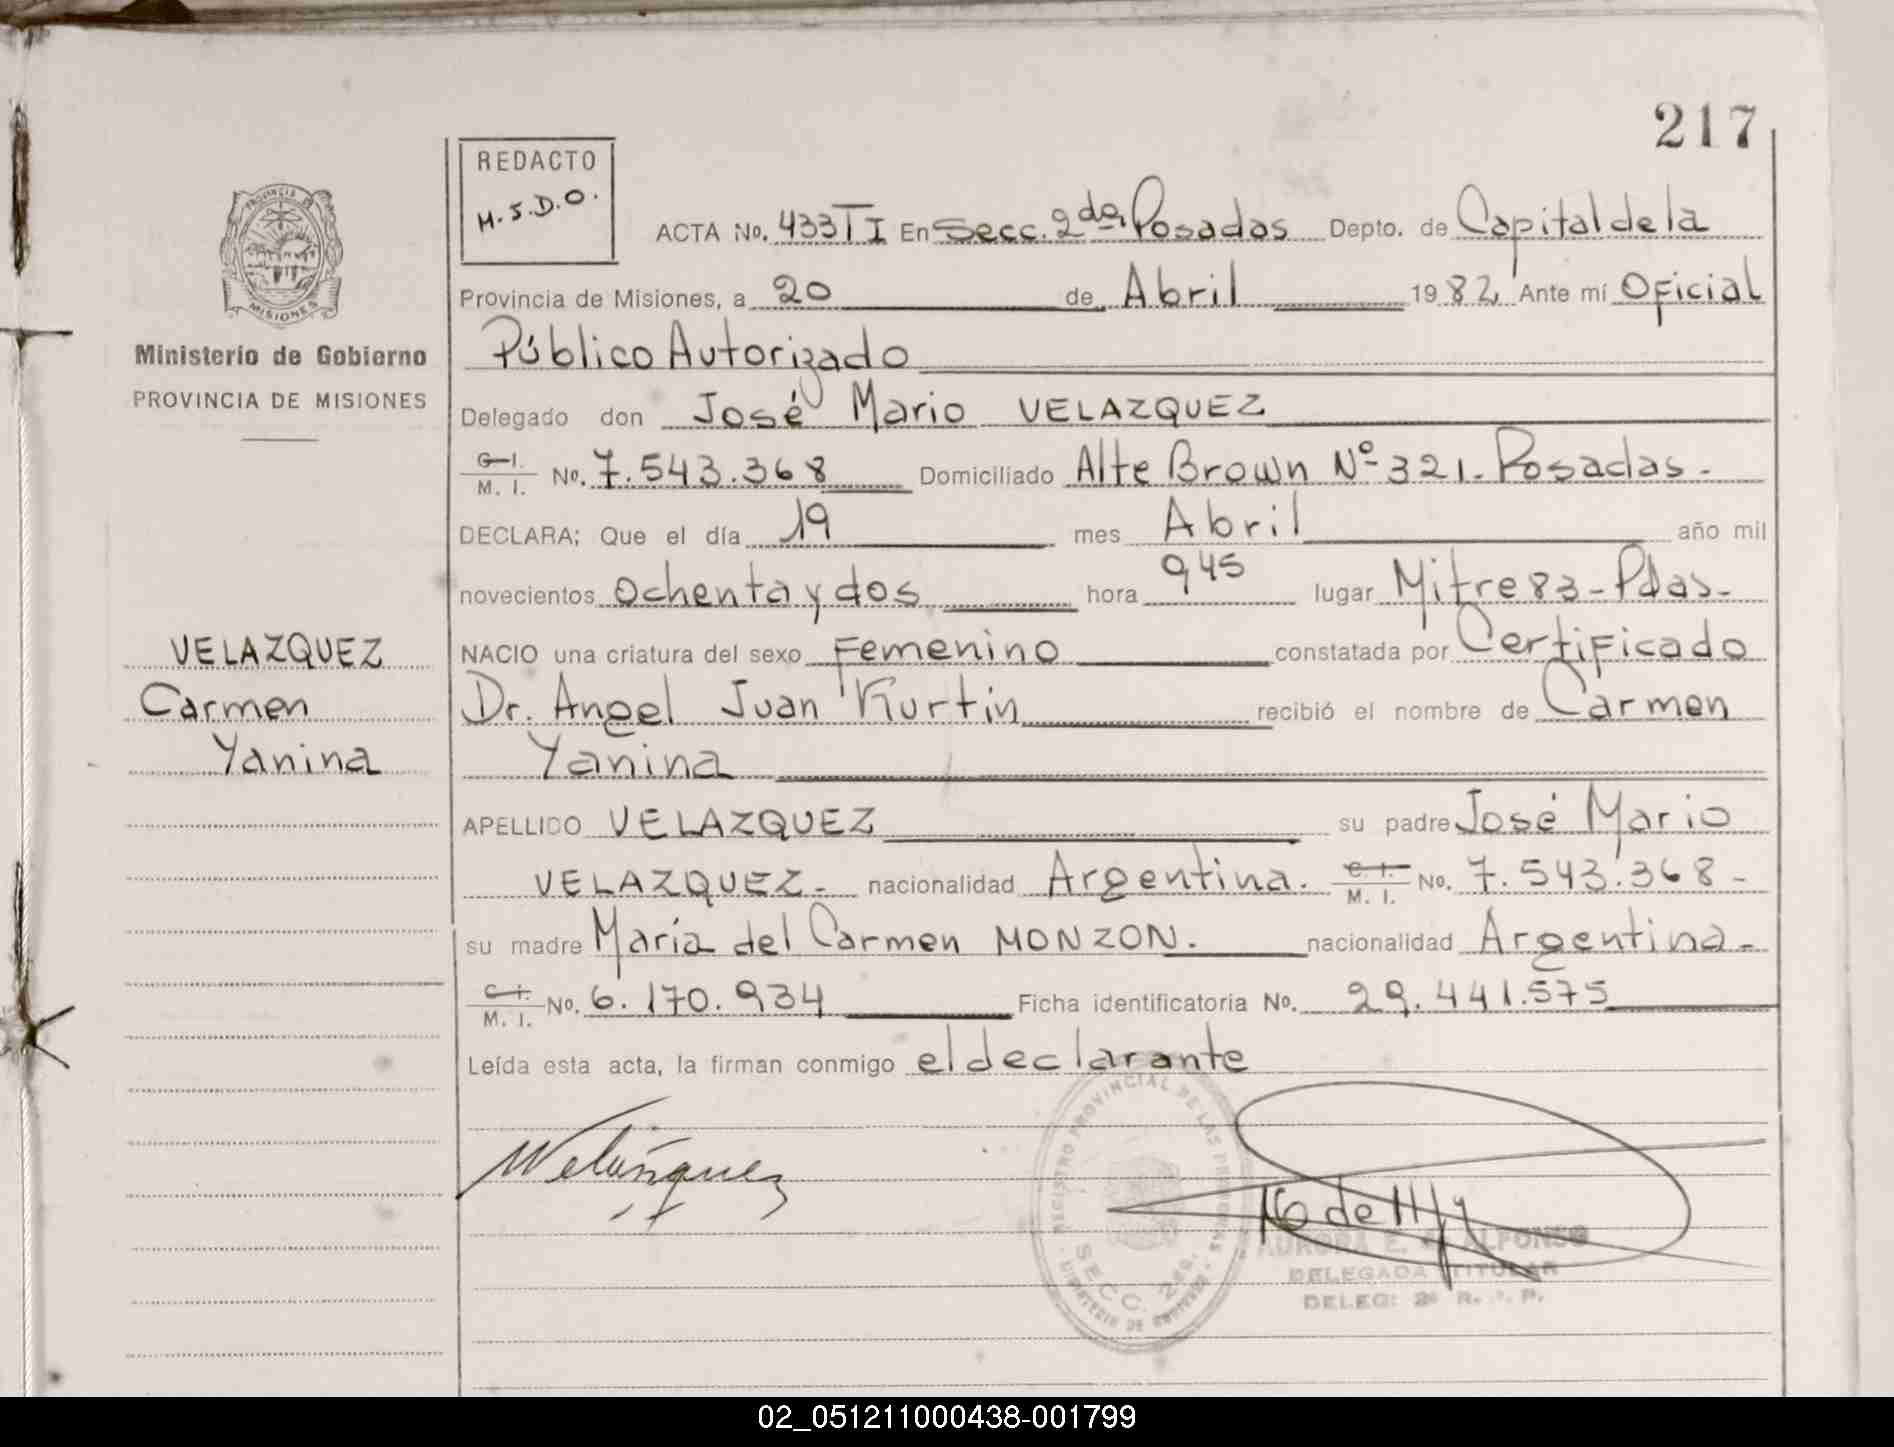 217
REDACTO
M.S.D.O.
ACTA No. 433 TI En Secc. 2da Posadas Depto. de Capital de la
Provincia de Misiones, a 20 de Abril 1982 Ante mi Oficial
Público Autorizado
Delegado don José Mario VELAZQUEZ
C. I. M. I. No. 7.543.368 Domiciliado Alte Brown Nº 321. Posadas.
DECLARA; Que el día 19 mes Abril año mil
novecientos ochenta y dos hora 945 lugar Mitre 83 - Pdas -
NACIO una criatura del sexo Femenino constatada por Certificado
Dr. Angel Juan Kurtin recibió el nombre de Carmen
Yanina
APELLIDO VELAZQUEZ su padre José Mario
VELAZQUEZ - nacionalidad Argentina. C. I. M. I. No. 7.543.368 -
su madre María del Carmen MONZON. nacionalidad Argentina -
C. I. M. I. No. 6.170.934 Ficha identificatoria No. 29.441.575
Leída esta acta, la firman conmigo el declarante
PROVINCIA
MISIONES
Ministerio de Gobierno
PROVINCIA DE MISIONES
VELAZQUEZ
Carmen
Yanina
REGISTRO PROVINCIAL DE LAS PERSONAS
SECC. 2da.
MINISTERIO DE GOBIERNO
AURORA E. ALFONSO
DELEGADA TITULAR
DELEG: 2ª R. P.
02_051211000438-001799